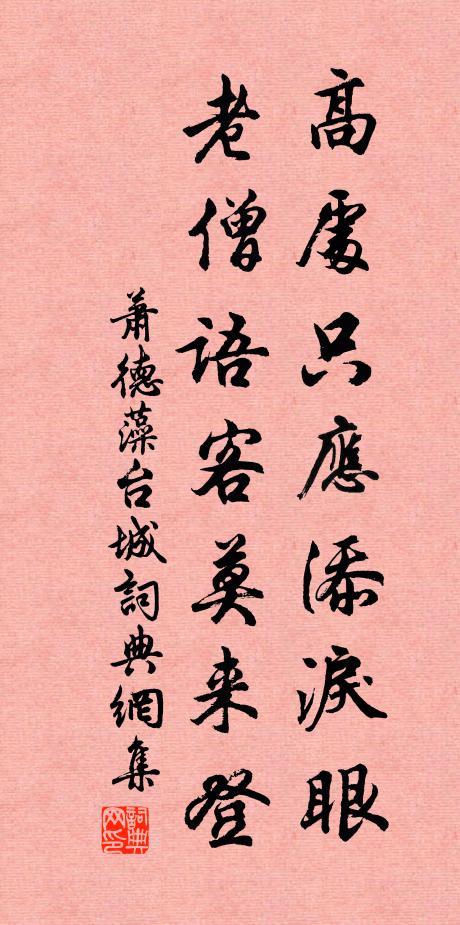 高處只應添淚眼
老僧語客莫来登
蕭德藻台城詞典網集
詞典网印